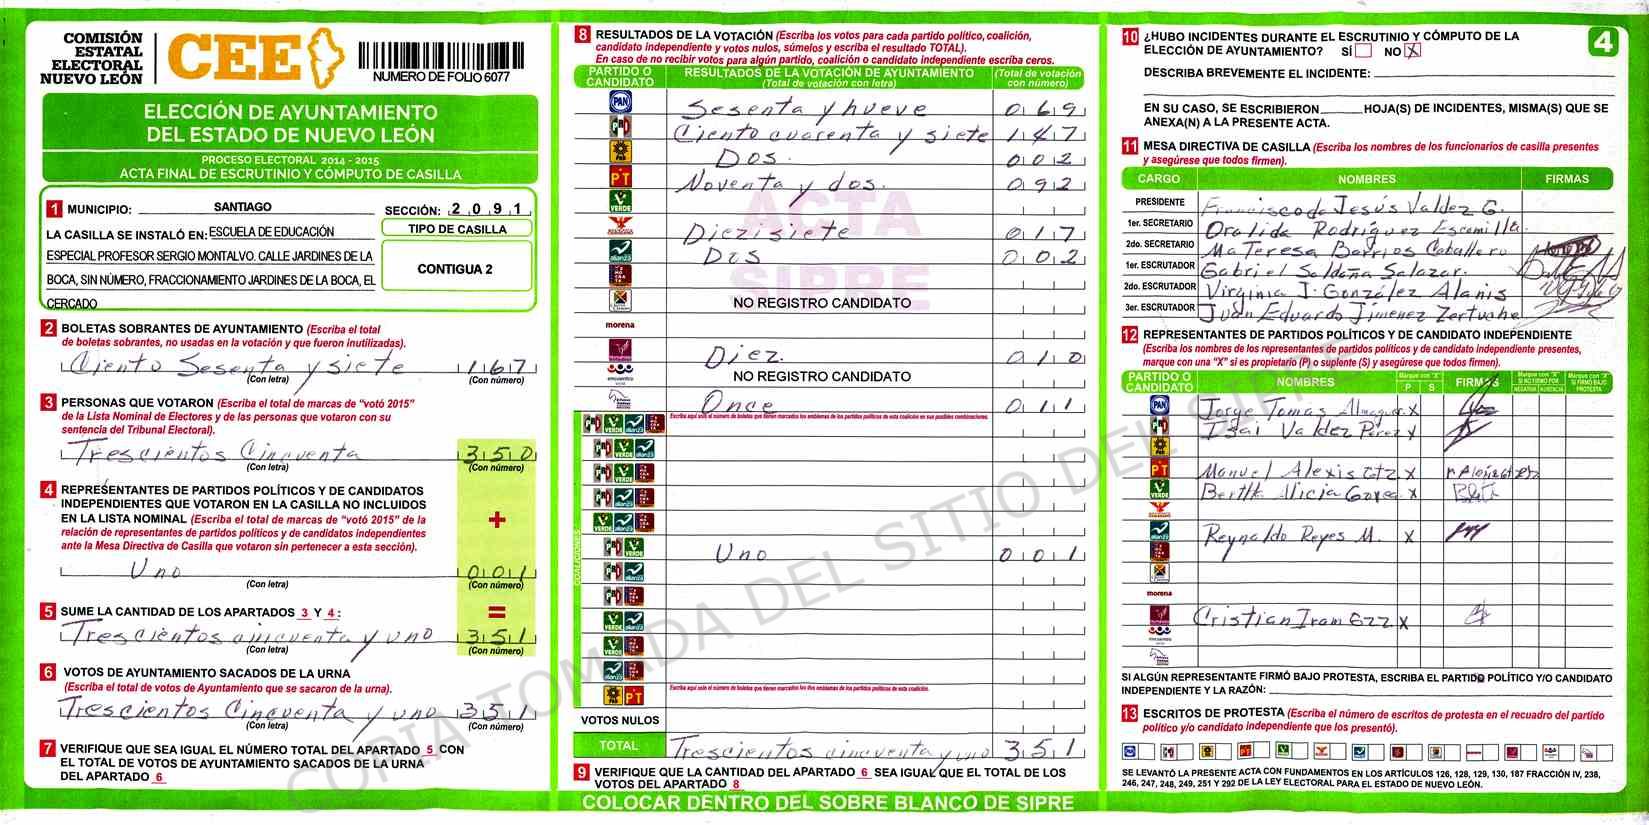 COMISIÓN
ESTATAL
ELECTORAL
NUEVO LEÓN
CEE
NUMERO DE FOLIO 6077
ELECCIÓN DE AYUNTAMIENTO
DEL ESTADO DE NUEVO LEÓN
PROCESO ELECTORAL 2014 - 2015
ACTA FINAL DE ESCRUTINIO Y CÓMPUTO DE CASILLA
1 MUNICIPIO: SANTIAGO SECCIÓN: 2 0 9 1
LA CASILLA SE INSTALÓ EN: ESCUELA DE EDUCACIÓN
ESPECIAL PROFESOR SERGIO MONTALVO. CALLE JARDINES DE LA
BOCA, SIN NÚMERO, FRACCIONAMIENTO JARDINES DE LA BOCA, EL
CERCADO
TIPO DE CASILLA
CONTIGUA 2
2 BOLETAS SOBRANTES DE AYUNTAMIENTO (Escriba el total
de boletas sobrantes, no usadas en la votación y que fueron inutilizadas).
Ciento Sesenta y siete 167
(Con letra) (Con número)
3 PERSONAS QUE VOTARON (Escriba el total de marcas de “votó 2015”
de la Lista Nominal de Electores y de las personas que votaron con su
sentencia del Tribunal Electoral).
Trescientos Cincuenta 350
(Con letra) (Con número)
4 REPRESENTANTES DE PARTIDOS POLÍTICOS Y DE CANDIDATOS
INDEPENDIENTES QUE VOTARON EN LA CASILLA NO INCLUIDOS
EN LA LISTA NOMINAL (Escriba el total de marcas de “votó 2015” de la
relación de representantes de partidos políticos y de candidatos independientes
ante la Mesa Directiva de Casilla que votaron sin pertenecer a esta sección).
+
Uno 001
(Con letra) (Con número)
5 SUME LA CANTIDAD DE LOS APARTADOS 3 Y 4 : =
Trescientos cincuenta y uno 351
(Con letra) (Con número)
6 VOTOS DE AYUNTAMIENTO SACADOS DE LA URNA
(Escriba el total de votos de Ayuntamiento que se sacaron de la urna).
Trescientos Cincuenta y uno 351
(Con letra) (Con número)
7 VERIFIQUE QUE SEA IGUAL EL NÚMERO TOTAL DEL APARTADO 5 CON
EL TOTAL DE VOTOS DE AYUNTAMIENTO SACADOS DE LA URNA
DEL APARTADO 6
8 RESULTADOS DE LA VOTACIÓN (Escriba los votos para cada partido político, coalición,
candidato independiente y votos nulos, súmelos y escriba el resultado TOTAL).
En caso de no recibir votos para algún partido, coalición o candidato independiente escriba ceros.
PARTIDO O CANDIDATO RESULTADOS DE LA VOTACIÓN DE AYUNTAMIENTO (Total de votación con letra) (Total de votación con número)
PAN Sesenta y nueve 069
PRD Ciento cuarenta y siete 147
Dos. 002
PT Noventa y dos. 092
VERDE
Diezisiete 017
Dos 002
NO REGISTRO CANDIDATO
morena
Diez. 010
NO REGISTRO CANDIDATO
Once 011
Escriba aquí solo el número de boletas que tienen marcados los emblemas de los partidos políticos de esta coalición en sus posibles combinaciones.
COALICIONES
Uno 001
Escriba aquí solo el número de boletas que tienen marcados los dos emblemas de los partidos políticos de esta coalición.
VOTOS NULOS
TOTAL Trescientos cincuenta y uno 351
9 VERIFIQUE QUE LA CANTIDAD DEL APARTADO 6 SEA IGUAL QUE EL TOTAL DE LOS
VOTOS DEL APARTADO 8
COLOCAR DENTRO DEL SOBRE BLANCO DE SIPRE
ACTA
SIPRE
COPIA TOMADA DEL SITIO DEL SIPRE
10 ¿HUBO INCIDENTES DURANTE EL ESCRUTINIO Y CÓMPUTO DE LA
ELECCIÓN DE AYUNTAMIENTO? SÍ NO X
4
DESCRIBA BREVEMENTE EL INCIDENTE:
EN SU CASO, SE ESCRIBIERON HOJA(S) DE INCIDENTES, MISMA(S) QUE SE
ANEXA(N) A LA PRESENTE ACTA.
11 MESA DIRECTIVA DE CASILLA (Escriba los nombres de los funcionarios de casilla presentes
y asegúrese que todos firmen).
CARGO NOMBRES FIRMAS
PRESIDENTE Francisco de Jesús Valdez G.
1er. SECRETARIO Oralida Rodríguez Escamilla.
2do. SECRETARIO Ma Teresa Barrios Caballero
1er. ESCRUTADOR Gabriel Saldaña Salazar.
2do. ESCRUTADOR Virginia J. González Alanis
3er. ESCRUTADOR Juan Eduardo Jimenez Zertuche
12 REPRESENTANTES DE PARTIDOS POLÍTICOS Y DE CANDIDATO INDEPENDIENTE
(Escriba los nombres de los representantes de partidos políticos y de candidato independiente presentes,
marque con una “X” si es propietario (P) o suplente (S) y asegúrese que todos firmen).
PARTIDO O CANDIDATO NOMBRES Marque con "X" P S FIRMAS Marque con "X" SI NO FIRMÓ POR NEGATIVA AUSENCIA Marque con "X" SI FIRMÓ BAJO PROTESTA
PAN Jorge Tomas Almaguer X
Isai Valdez Perez X
PT Manuel Alexis Gtz X
VERDE Bertha Alicia X
Reynaldo Reyes M. X
morena
Cristian Ivan Gzz X
SI ALGÚN REPRESENTANTE FIRMÓ BAJO PROTESTA, ESCRIBA EL PARTIDO POLÍTICO Y/O CANDIDATO
INDEPENDIENTE Y LA RAZÓN:
13 ESCRITOS DE PROTESTA (Escriba el número de escritos de protesta en el recuadro del partido
político y/o candidato independiente que los presentó).
SE LEVANTÓ LA PRESENTE ACTA CON FUNDAMENTOS EN LOS ARTÍCULOS 126, 128, 129, 130, 187 FRACCIÓN IV, 238,
246, 247, 248, 249, 251 Y 292 DE LA LEY ELECTORAL PARA EL ESTADO DE NUEVO LEÓN.